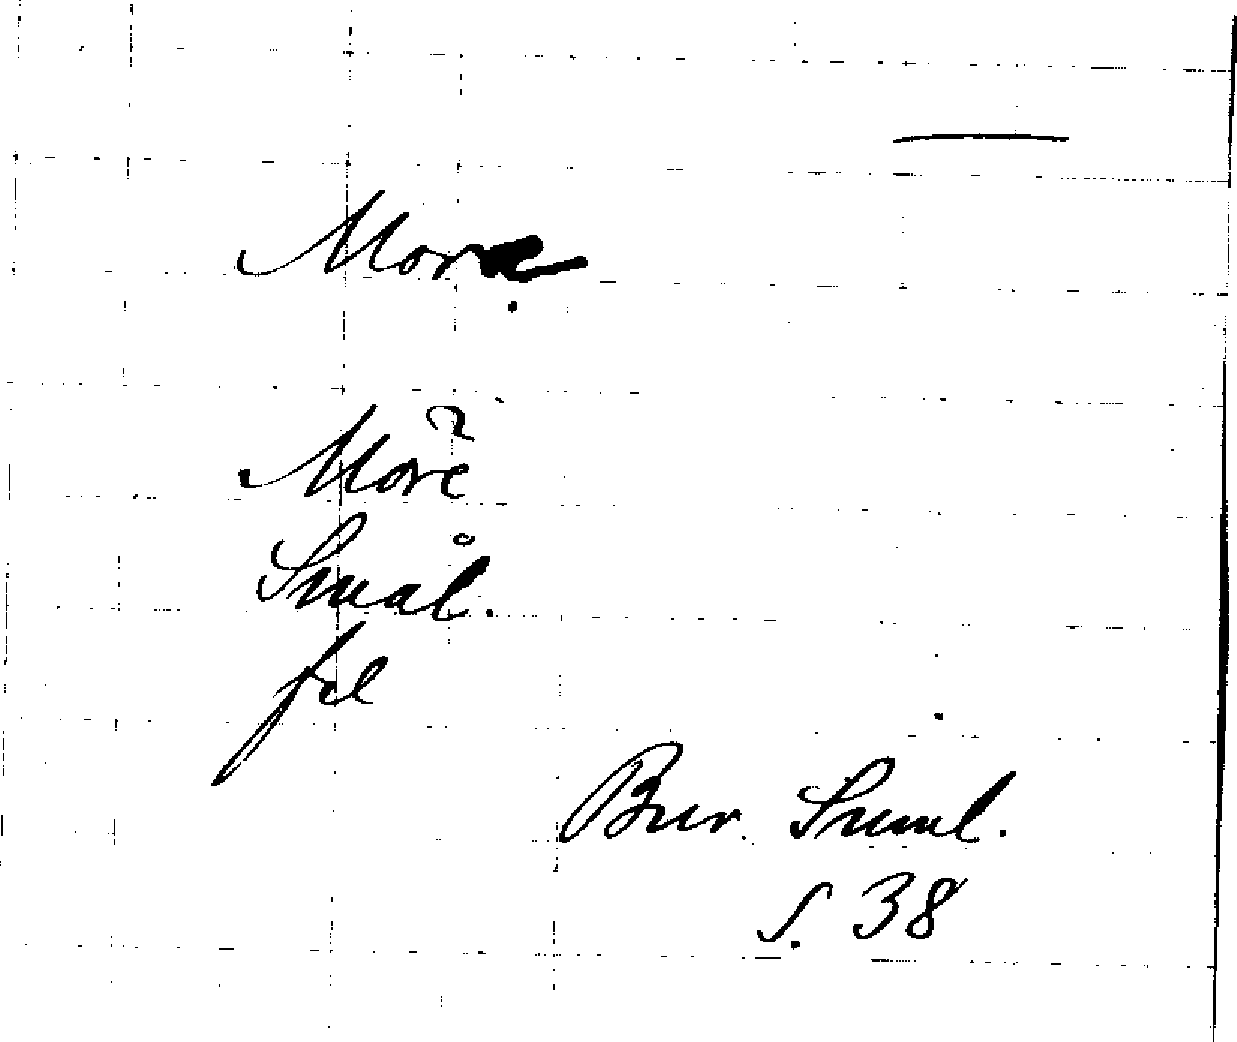 More
Moré
Smål.
fel
Bur. Saml.
s. 38